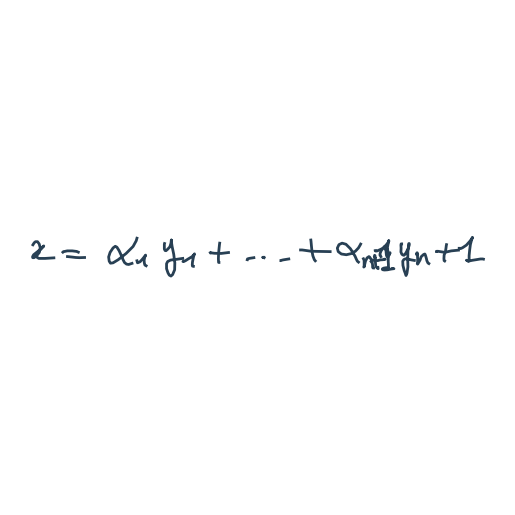 z = α₁ y₁ + ... + αₙ₊₁ yₙ + 1